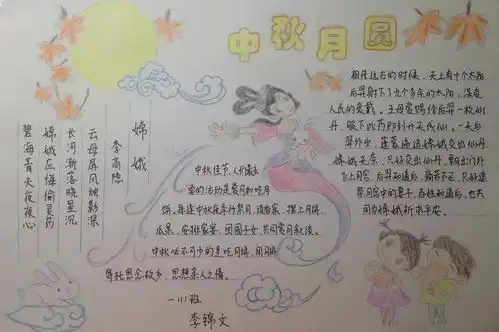 中秋月圆
嫦娥
李商隐
云母屏风烛影深
长河渐落晓星沉
嫦娥应悔偷灵药
碧海青天夜夜心
中秋佳节,人们最主
要的活动是赏月和吃月
饼,每逢中秋夜举行祭月,设香案,摆上月饼
瓜果,安排家宴,团圆子女,共同赏月叙谈。
中秋必不可少的是吃月饼,用月饼
寄托思念故乡,思想亲人之情。
一(1)班
李锦文
相传远古的时候,天上有十个太阳
后羿射下了九个多余的太阳,深受
人民的爱戴。王母赏赐给后羿一枚仙
丹,服下此药即刻升天成仙。一天后
羿外出,蓬蒙逼迫嫦娥交出仙丹,
嫦娥无奈,只好交出仙丹,
飞上月宫,后羿知道后,痛苦不已,只好遥
望月宫中的妻子,百姓知道后,也天
月为嫦娥祈求平安。